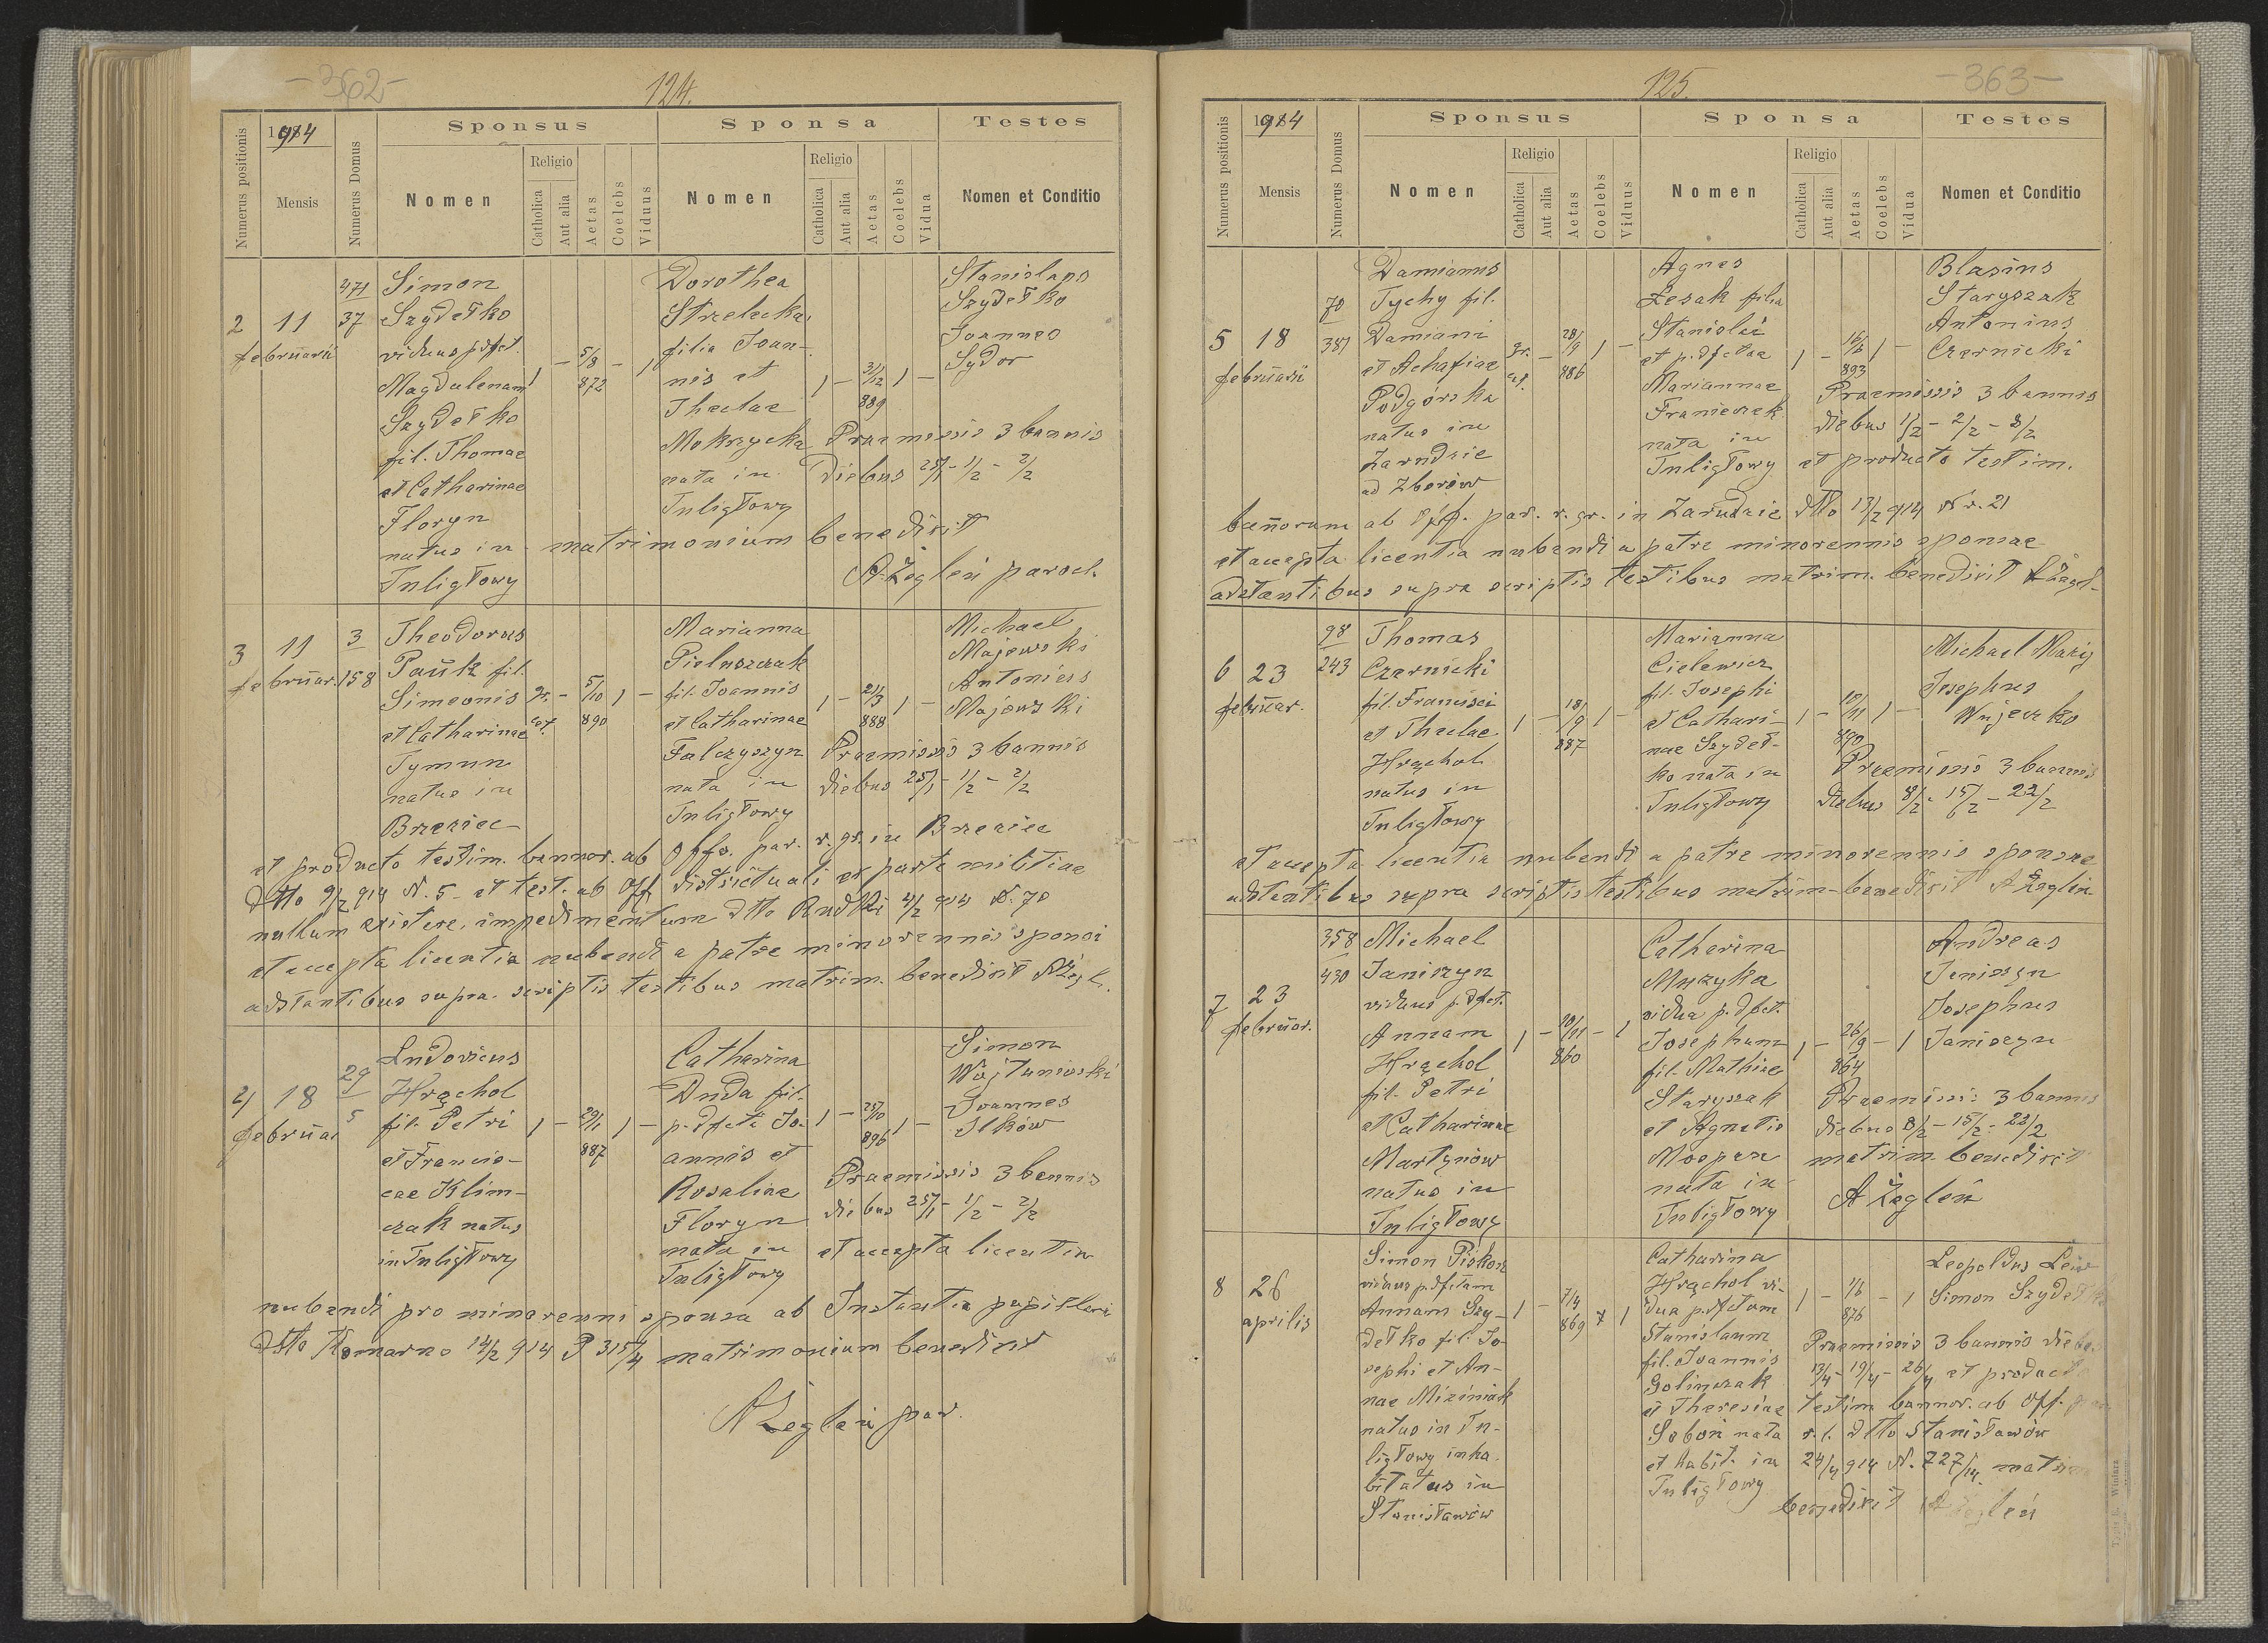 -362-
124.
Numerus positionis
1914
Mensis
Numerus Domus
Sponsus
Sponsa
Testes
Nomen
Religio
Catholica
Aut alia
Aetas
Coelebs
Viduus
Nomen
Religio
Catholica
Aut alia
Aetas
Coelebs
Vidua
Nomen et Conditio
2
11
februarii
471
37
Simon
Szydełko
viduus p. dfct.
Magdalenam
Szydełko
fil. Thomae
et Catharinae
Floryn
natus in
Tuligłowy
1 - 5/8 - 1
872
Dorothea
Strzelecka
filia Joan-
nis et
Theclae
Mokrzycka
nata in
Tuligłowy
1 - 31/12 1 -
889
Stanislaus
Szydełko
Joannes
Sydor
Praemissis 3 bannis
diebus 25/1 - 1/2 - 2/2
matrimonium benedixit
A Żegleń paroch.
3
11
februar.
3
158
Theodorus
Pauk fil.
Simeonis
et Catharinae
Tymun
natus in
Brzeziec
gr. cat. - 5/10 1 -
890
Marianna
Pieluszczak
fil. Joannis
et Catharinae
Falczyszyn
nata in
Tuligłowy
1 - 21/3 1 -
888
Michael
Majewski
Antonius
Majewski
Praemissis 3 bannis
diebus 25/1 - 1/2 - 2/2
et producto testim. bannor. ab offo. par. r. gr. in Brzeziec
dtto 9/2 914 N. 5 - et test. ab Off districtuali ex parte militiae
nullum existere impedimentum dtto Rudki 4/2 914 N. 70
et accepta licentia nubendi a patre minorennis sponsi
adstantibus supra scriptis testibus matrim. benedixit AŻegl.
4
18
februar
29
5
Ludovicus
Hrąchol
fil. Petri
et Francis-
cae Klim-
czak natus
in Tuligłowy
1 - 29/1 1 -
887
Catharina
Duda fil.
p. dfcti Jo-
annis et
Rosaliae
Floryn
nata in
Tuligłowy
1 - 25/10 1 -
896
Simon
Wojtunioski
Joannes
Ilków
Praemissis 3 bannis
diebus 25/1 - 1/2 - 2/2
et accepta licentia
nubendi pro minorenni sponsa ab Instantia pupillari
dtto Komarno 14/2 914 P 315/4 matrimonium benedixit
AŻegleń par.
125.
-363-
Numerus positionis
1914
Mensis
Numerus Domus
Sponsus
Sponsa
Testes
Nomen
Religio
Catholica
Aut alia
Aetas
Coelebs
Viduus
Nomen
Religio
Catholica
Aut alia
Aetas
Coelebs
Vidua
Nomen et Conditio
5
18
februarii
70
387
Damianus
Tychy fil.
Damiani
et Achafiae
Podgórska
natus in
Zarudzie
ad Zborów
gr. cat. - 28/9 1 -
886
Agnes
Lesak filia
Stanislai
et p. dfctae
Mariannae
Franiczek
nata in
Tuligłowy
1 - 16/6 1 -
893
Blasius
Staryszak
Antonius
Czernicki
Praemissis 3 bannis
diebus 1/2 - 2/2 - 8/2
et producto testim.
bannorum ab off. par. r. gr. in Zarudzie dtto 13/2 914 Nr. 21
et accepta licentia nubendi a patre minorennis sponsae
adstantibus supra scriptis testibus matrim. benedixit AŻegl-
6
23
februar.
98
243
Thomas
Czernicki
fil. Francisci
et Theclae
Hrąchol
natus in
Tuligłowy
1 - 18/9 1 -
887
Marianna
Cielewicz
fil. Josephi
et Cathari-
nae Szydeł-
ko nata in
Tuligłowy
1 - 10/11 1 -
890
Michael Mazij
Josephus
Wujeczko
Praemissis 3 bannis
diebus 8/2 - 15/2 - 22/2
et accepta licentia nubendi a patre minorennis sponsae
adstantibus supra scriptis testibus matrim- benedixit A Żegleń
7
23
februar.
358
430
Michael
Janiszyn
viduus p. dfct.
Annam
Hrąchol
fil. Petri
et Catharinae
Martynów
natus in
Tuligłowy
1 - 10/11 - 1
860
Catharina
Muzyka
vidua p. dfct.
Josephum
fil. Mathiae
Staryszak
et Agnetis
Mospan
nata in
Tuligłowy
1 - 26/9 - 1
864
Andreas
Janiszyn
Josephus
Janiszyn
Praemissis 3 bannis
diebus 8/2 - 15/2 - 22/2
matrim. benedixit
A Żegleń
8
26
aprilis
Simon Piskor
viduus p. dfctam
Annam Szy-
dełko fil. Jo-
sephi et An-
nae Miziniak
natus in Tu-
ligłowy inha-
bitatus in
Stanisławów
1 - 7/4 1
869
Catharina
Hrąchol vi-
dua p. dctum
Stanislaum
fil. Joannis
Golinczak
et Theresiae
Soboń nata
et habit. in
Tuligłowy
1 - 1/6 - 1
876
Leopoldus
Simon Szydełko
Praemissis 3 bannis
13/4 - 19/4 - 26/4 et producto
testim bannor. ab off.
r. l. dtto Stanisławów
24/4 914 N. 727/14 matrim
benedixit A Żegleń